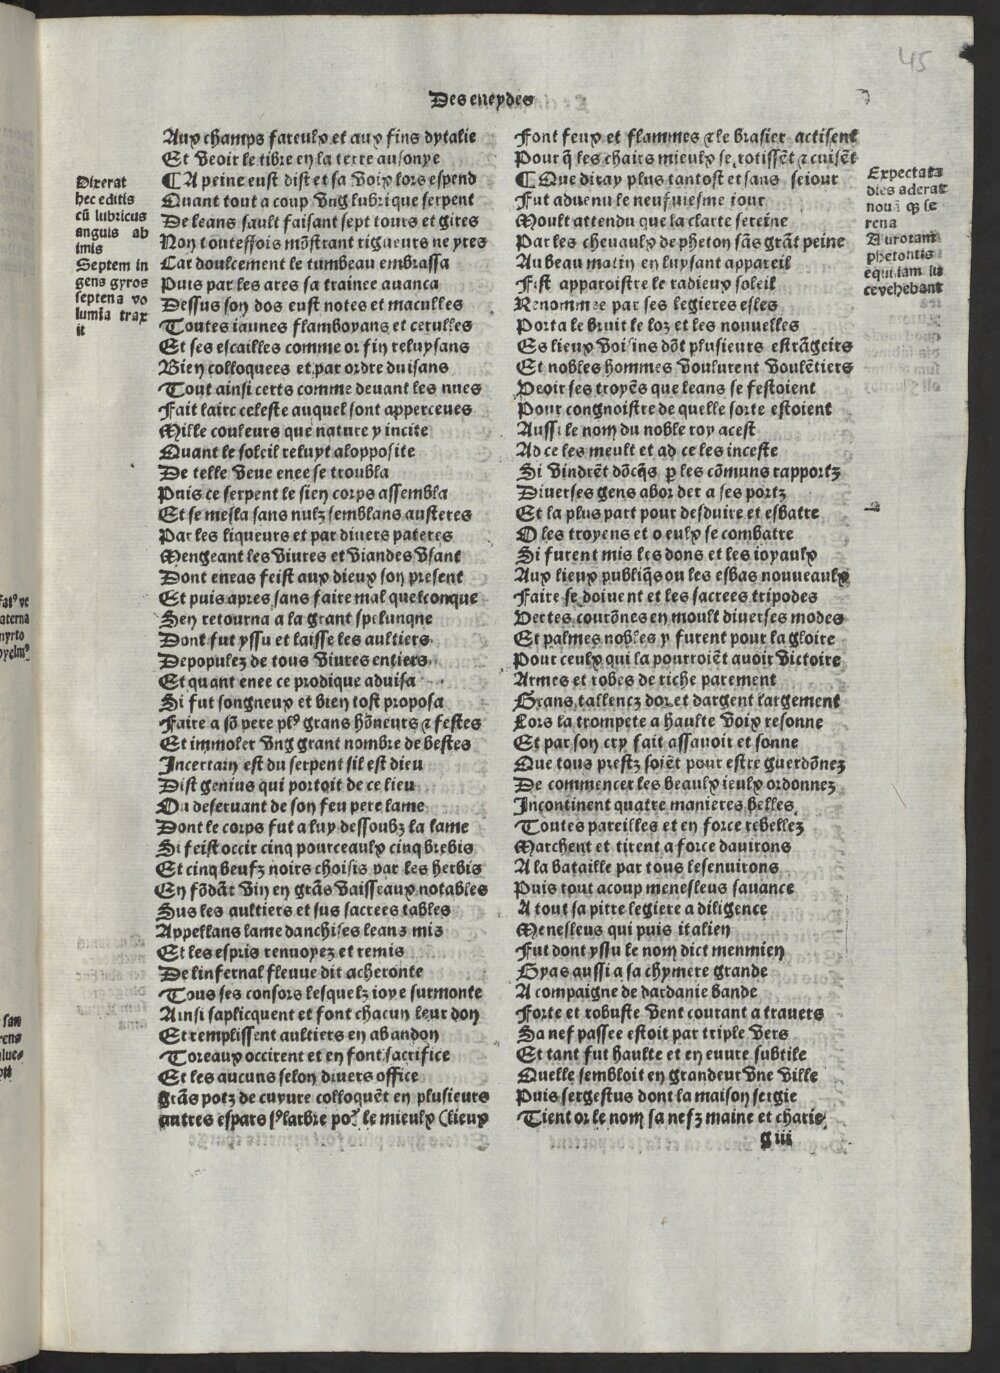 45
Des eneydes
Dixerat
hec editis
cū lubricus
anguis ab
imis
Septem in
gens gyros
septena vo
lumīa trax
it
Aux champs fareulx et aux fins dytalie
Et veoir le tibre en la terre ausonye
¶A peine eust dist et sa voix lors espend
Quant tout a coup vng lubrique serpent
De leans sault faisant sept tours et gires
Non touteffois mōstrant rigueurs ne yres
Car doulcement le tumbeau embrassa
Puis par les ares sa trainee auanca
Dessus son dos eust notes et maculles
Toutes iaunes flamboyans et cerulles
Et ses escailles comme or fin reluysans
Bien colloquees et par ordre duisans
Tout ainsi certs comme deuant les nues
Fait lairc celeste auquel sont apperceues
Mille couleurs que nature y incite
Quant le soleil reluyt alopposite
De telle veue enee se troubla
Puis ce serpent le sien corps assembla
Et se mesla sans nulz semblans austeres
Par les liqueurs et par diuers pateres
Mengeant les viures et viandes vsant
Dont eneas feist aux dieux son present
Et puis apres sans faire mal quelconque
Sen retourna a la grant spelunqne
Dont fut yssu et laisse les aultiers
Depopulez de tous viures entiers
Et quant enee ce prodique aduisa
Si fut songneux et bien tost proposa
Faire a sō pere plꝰ grans hōneurs ⁊ festes
Et immoler vng grant nombre de bestes
Incertain est du serpent sil est dieu
Dist genius qui portoit de ce lieu
Ou deseruant de son feu pere lame
Dont le corps fut a luy dessoubz la lame
Si feist occir cinq pourceaulx cinq brebis
Et cinq beufz noirs choisis par les herbis
En fōdāt vin en grās vaisseaux notables
Sus les aultiers et sus sacrees tables
Appellans lame danchises leans mis
Et les espris renuoyez et remis
De linfernal fleuue dit acheronte
Tous ses consors lesquelz ioye surmonte
Ainsi saplicquent et font chacun leur don
Et remplissent aultiers en abandon
Toreaux occirent et en font sacrifice
Et les aucuns selon diuers office
grās potz de cuyure colloquēt en plusieurs
autres espars sꝰ larbre poꝰ le mieulx (lieux
Font feux et flammes ⁊ le brasier actisent
Pour q̄ les chairs mieulx se rotissēt ⁊ cuisēt
¶Que diray plus tantost et sans seiour
Fut aduenu le neufuiesme iour
Moult attendu que la clarte sereine
Par les cheuaulx de pheton sās grāt peine
Au beau matin en luysant appareil
Fist apparoistre le radieux soleil
Renommee par ses legieres esles
Porta le bruit le loz et les nouuelles
Es lieux voisins dōt plusieurs estrāgeirs
Et nobles hommes voulurent voulētiers
Veoir ses troyēs que leans se festoient
Pour congnoistre de quelle sorte estoient
Aussi le nom du noble roy acest
Ad ce les meult et ad ce les inceste
Si vindrēt dōcq̄s ꝑ les cōmuns rapportz
Diuerses gens abor der a ses portz
Et la plus part pour desduire et esbatre
O les troyens et o eulx se combatre
Si furent mis les dons et les ioyaulx
Aux lieux publiq̄s ou les esbas nouueaulx
Faire se doiuent et les sacrees tripodes
Vertes courōnes en moult diuerses modes
Et palmes nobles y furent pour la gloire
Pour ceulx qui la pourroiēt auoir victoire
Armes et robes de riche parement
Grans tallencz dor et dargent largement
Lors la trompete a haulte voix resonne
Et par son cry fait assauoir et sonne
Que tous prestz soiēt pour estre guerdōnez
De commencer les beaulx ieulx ordonnez
Incontinent quatre manieres belles
Toutes pareilles et en force rebellez
Marchent et tirent a force dauirons
A la bataille par tous lesenuirons
Puis tout acoup menesleus sauance
A tout sa pitre legiere a diligence
Menesleus qui puis italien
Fut dont yssu le nom dict menmien
Gyas aussi a sa chymere grande
A compaigne de dardanie bande
Forte et robuste vent courant a trauers
Sa nef passee estoit par triple vers
Et tant fut haulte et en euure subtile
Quelle sembloit en grandeur vne ville
Puis sergestus dont la maison sergie
Tient or le nom sa nefz maine et charie
g iii
Expectata
dies aderat
nouā q̄ se
rena
Auroram
phetontis
equi iam lu
ce vehebant